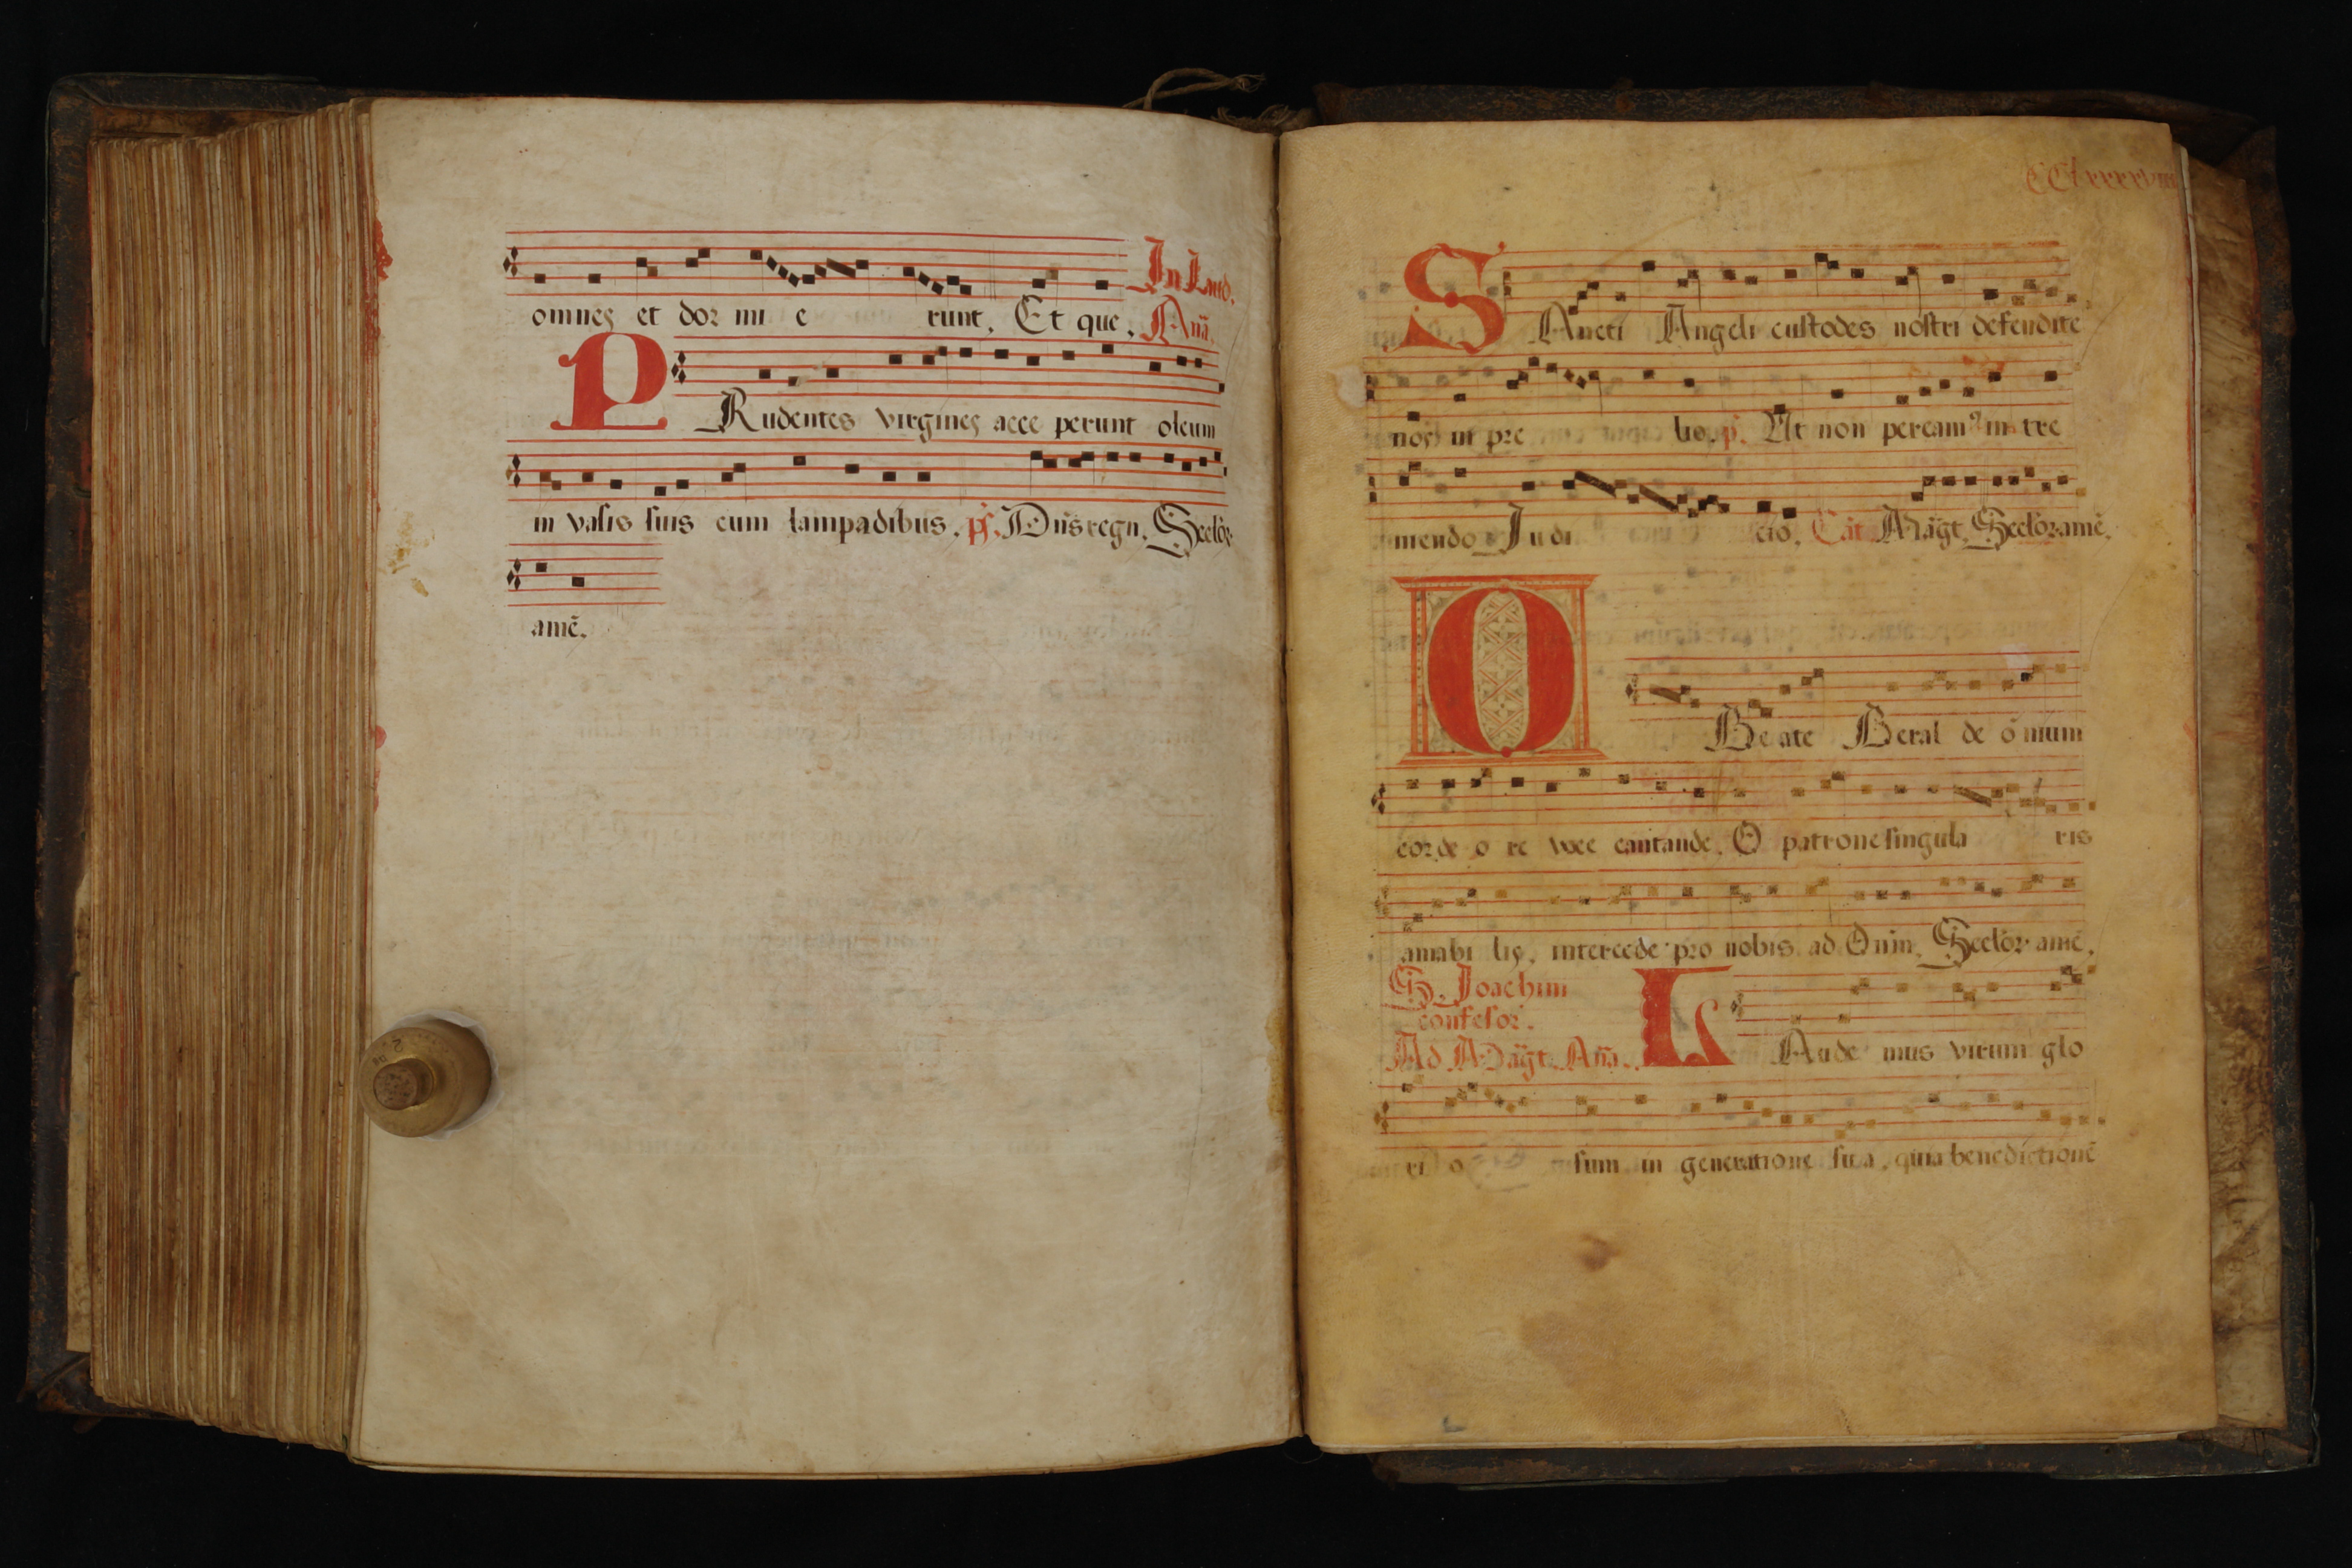 omnes et dor mi e runt. Et que. In Laud.
Anã.
P Rudentes virgines acce perunt oleum
in vasis suis cum lampadibus. ps. Dñs regn. Seclor
amẽ.
S Ancti Angeli custodes nostri defendite
nos in pre lio. p. Ut non peream⁹ in tre
mendo Judi cio. Cãt Mãgt. Seclor. amẽ.
O Beate Beral de õ nium
corde o re voce cantande. O patrone singula ris
amabi lis, intercede pro nobis ad Dñm. Seclor. amẽ.
S. Joachim
confesor.
Ad Mãgt. Anã. L Aude mus virum glo
ri o sum in generatione sua, quia benedictionẽ